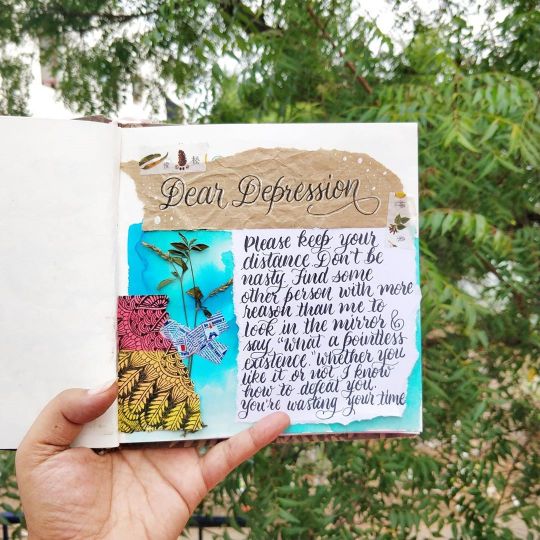 松
Dear Depression
Please keep your
distance Don't be
nasty Find some
other person with more
reason than me to
look in the mirror &
say, "What a pointless
existence." Whether you
like it or not I know
how to defeat you.
You're wasting your time